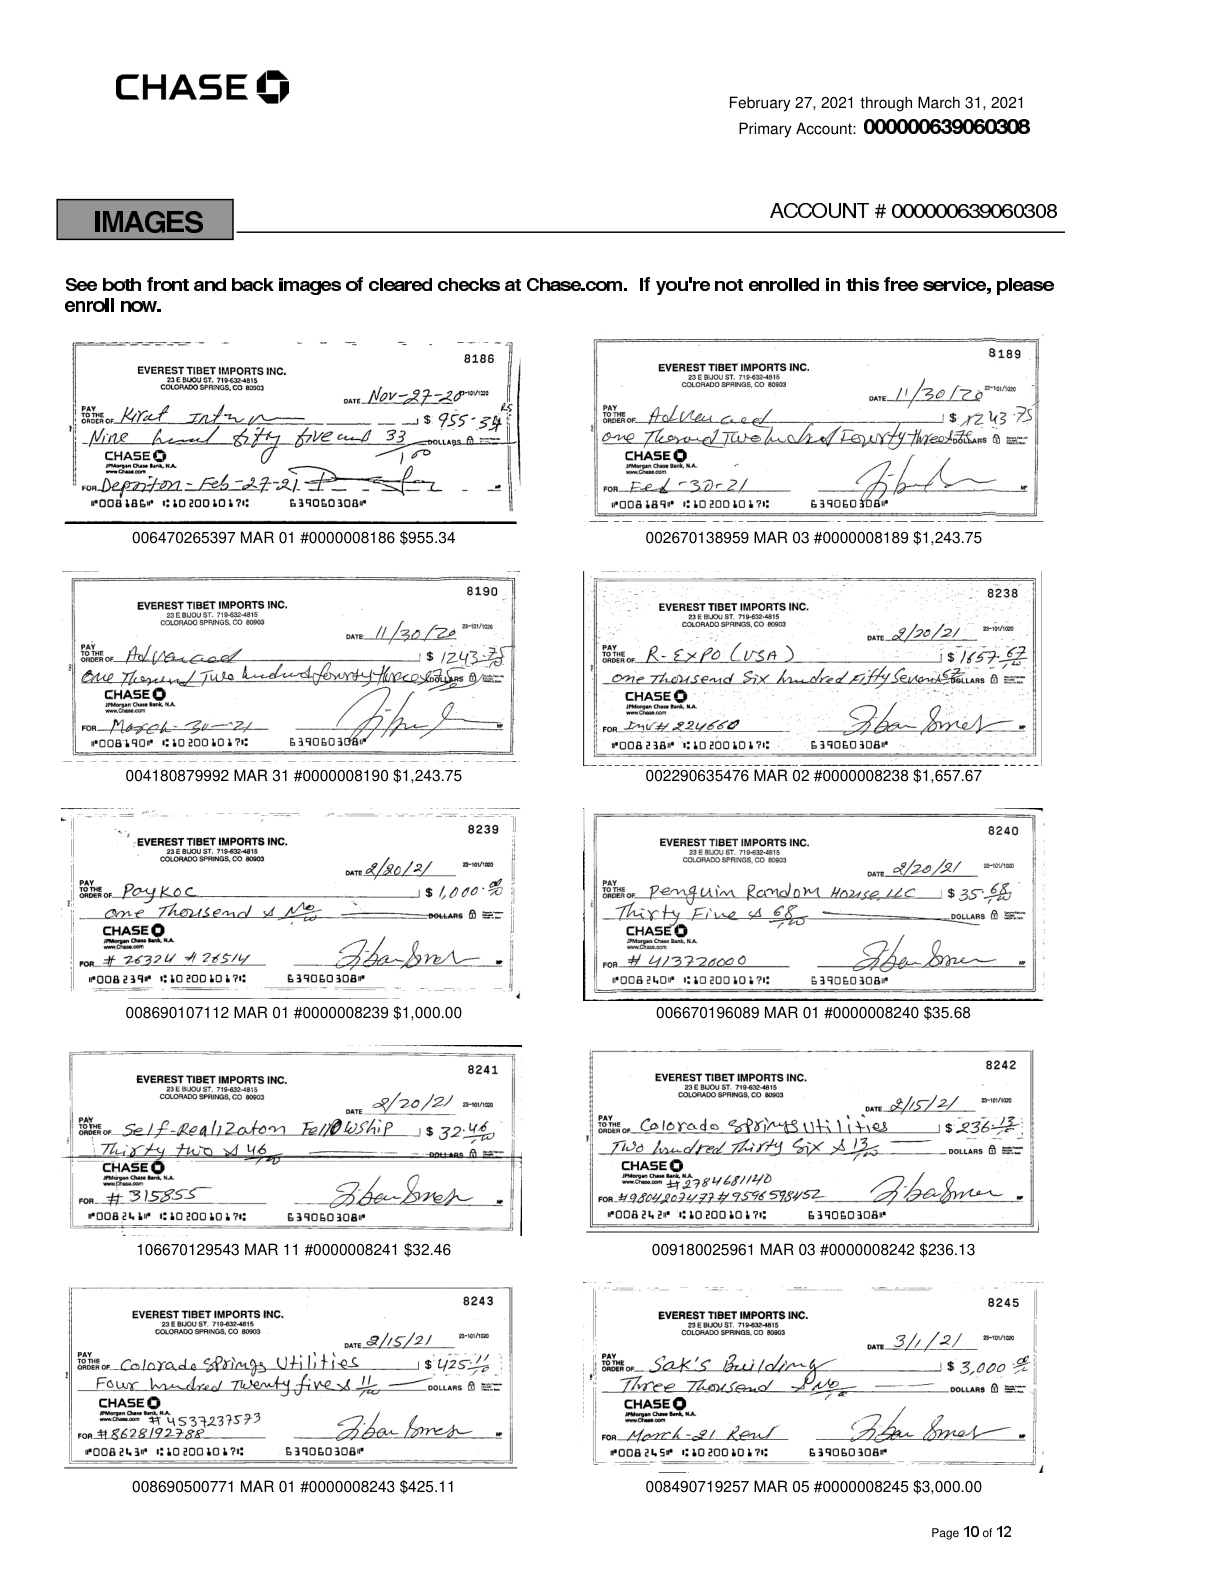 CHASE
February 27, 2021 through March 31, 2021
Primary Account: 000000639060308
IMAGES
ACCOUNT # 000000639060308
See both front and back images of cleared checks at Chase.com. If you're not enrolled in this free service, please
enroll now.
8186
EVEREST TIBET IMPORTS INC.
23 E BIJOU ST. 719-632-4815
COLORADO SPRINGS, CO 80903
DATE Nov-27-20 23-101/1020
PAY TO THE ORDER OF Kirat $ 955.34
Nine fifty five and 33/100 DOLLARS
CHASE
JPMorgan Chase Bank, N.A.
www.Chase.com
FOR Feb-27-21
⑈008186⑈ ⑆102001017⑆ 639060308⑈
006470265397 MAR 01 #0000008186 $955.34
8189
EVEREST TIBET IMPORTS INC.
23 E BIJOU ST. 719-632-4815
COLORADO SPRINGS, CO 80903
DATE 11/30/20 23-101/1020
PAY TO THE ORDER OF Advanced $ 1243.75
DOLLARS
CHASE
JPMorgan Chase Bank, N.A.
www.Chase.com
FOR Feb-30-21
⑈008189⑈ ⑆102001017⑆ 639060308⑈
002670138959 MAR 03 #0000008189 $1,243.75
8190
EVEREST TIBET IMPORTS INC.
23 E BIJOU ST. 719-632-4815
COLORADO SPRINGS, CO 80903
DATE 11/30/20 23-101/1020
PAY TO THE ORDER OF Advanced $ 1243.75
DOLLARS
CHASE
JPMorgan Chase Bank, N.A.
www.Chase.com
FOR March-30-21
⑈008190⑈ ⑆102001017⑆ 639060308⑈
004180879992 MAR 31 #0000008190 $1,243.75
8238
EVEREST TIBET IMPORTS INC.
23 E BIJOU ST. 719-632-4815
COLORADO SPRINGS, CO 80903
DATE 2/20/21 23-101/1020
PAY TO THE ORDER OF R-EXPO (USA) $ 1657.67/100
one Thousend Six hundred Fifty Seven & 67/100 DOLLARS
CHASE
JPMorgan Chase Bank, N.A.
www.Chase.com
FOR Inv# 224660
⑈008238⑈ ⑆102001017⑆ 639060308⑈
002290635476 MAR 02 #0000008238 $1,657.67
8239
EVEREST TIBET IMPORTS INC.
23 E BIJOU ST. 719-632-4815
COLORADO SPRINGS, CO 80903
DATE 2/20/21 23-101/1020
PAY TO THE ORDER OF Paykoc $ 1,000.00/100
one Thousend & No/100 DOLLARS
CHASE
JPMorgan Chase Bank, N.A.
www.Chase.com
FOR # 26324 # 26514
⑈008239⑈ ⑆102001017⑆ 639060308⑈
008690107112 MAR 01 #0000008239 $1,000.00
8240
EVEREST TIBET IMPORTS INC.
23 E BIJOU ST. 719-632-4815
COLORADO SPRINGS, CO 80903
DATE 2/20/21 23-101/1020
PAY TO THE ORDER OF Penguin Random House, LLC $ 35.68/100
Thirty Five & 68/100 DOLLARS
CHASE
JPMorgan Chase Bank, N.A.
www.Chase.com
FOR # 413720000
⑈008240⑈ ⑆102001017⑆ 639060308⑈
006670196089 MAR 01 #0000008240 $35.68
8241
EVEREST TIBET IMPORTS INC.
23 E BIJOU ST. 719-632-4815
COLORADO SPRINGS, CO 80903
DATE 2/20/21 23-101/1020
PAY TO THE ORDER OF Self-Realizaton Fellowship $ 32.46/100
Thirty two & 46/100 DOLLARS
CHASE
JPMorgan Chase Bank, N.A.
www.Chase.com
FOR # 315855
⑈008241⑈ ⑆102001017⑆ 639060308⑈
106670129543 MAR 11 #0000008241 $32.46
8242
EVEREST TIBET IMPORTS INC.
23 E BIJOU ST. 719-632-4815
COLORADO SPRINGS, CO 80903
DATE 2/15/21 23-101/1020
PAY TO THE ORDER OF Colorado Springs Utilities $ 236.13/100
Two hundred Thirty Six & 13/100 DOLLARS
CHASE
JPMorgan Chase Bank, N.A.
www.Chase.com # 2784681140
FOR #9804207477 #9596598452
⑈008242⑈ ⑆102001017⑆ 639060308⑈
009180025961 MAR 03 #0000008242 $236.13
8243
EVEREST TIBET IMPORTS INC.
23 E BIJOU ST. 719-632-4815
COLORADO SPRINGS, CO 80903
DATE 2/15/21 23-101/1020
PAY TO THE ORDER OF Colorado Springs Utilities $ 425.11/100
Four hundred Twenty five & 11/100 DOLLARS
CHASE
JPMorgan Chase Bank, N.A.
www.Chase.com # 4537237573
FOR #8628192788
⑈008243⑈ ⑆102001017⑆ 639060308⑈
008690500771 MAR 01 #0000008243 $425.11
8245
EVEREST TIBET IMPORTS INC.
23 E BIJOU ST. 719-632-4815
COLORADO SPRINGS, CO 80903
DATE 3/1/21 23-101/1020
PAY TO THE ORDER OF Sak's Building $ 3,000.00/100
Three Thousend & No/100 DOLLARS
CHASE
JPMorgan Chase Bank, N.A.
www.Chase.com
FOR March-21 Rent
⑈008245⑈ ⑆102001017⑆ 639060308⑈
008490719257 MAR 05 #0000008245 $3,000.00
Page 10 of 12